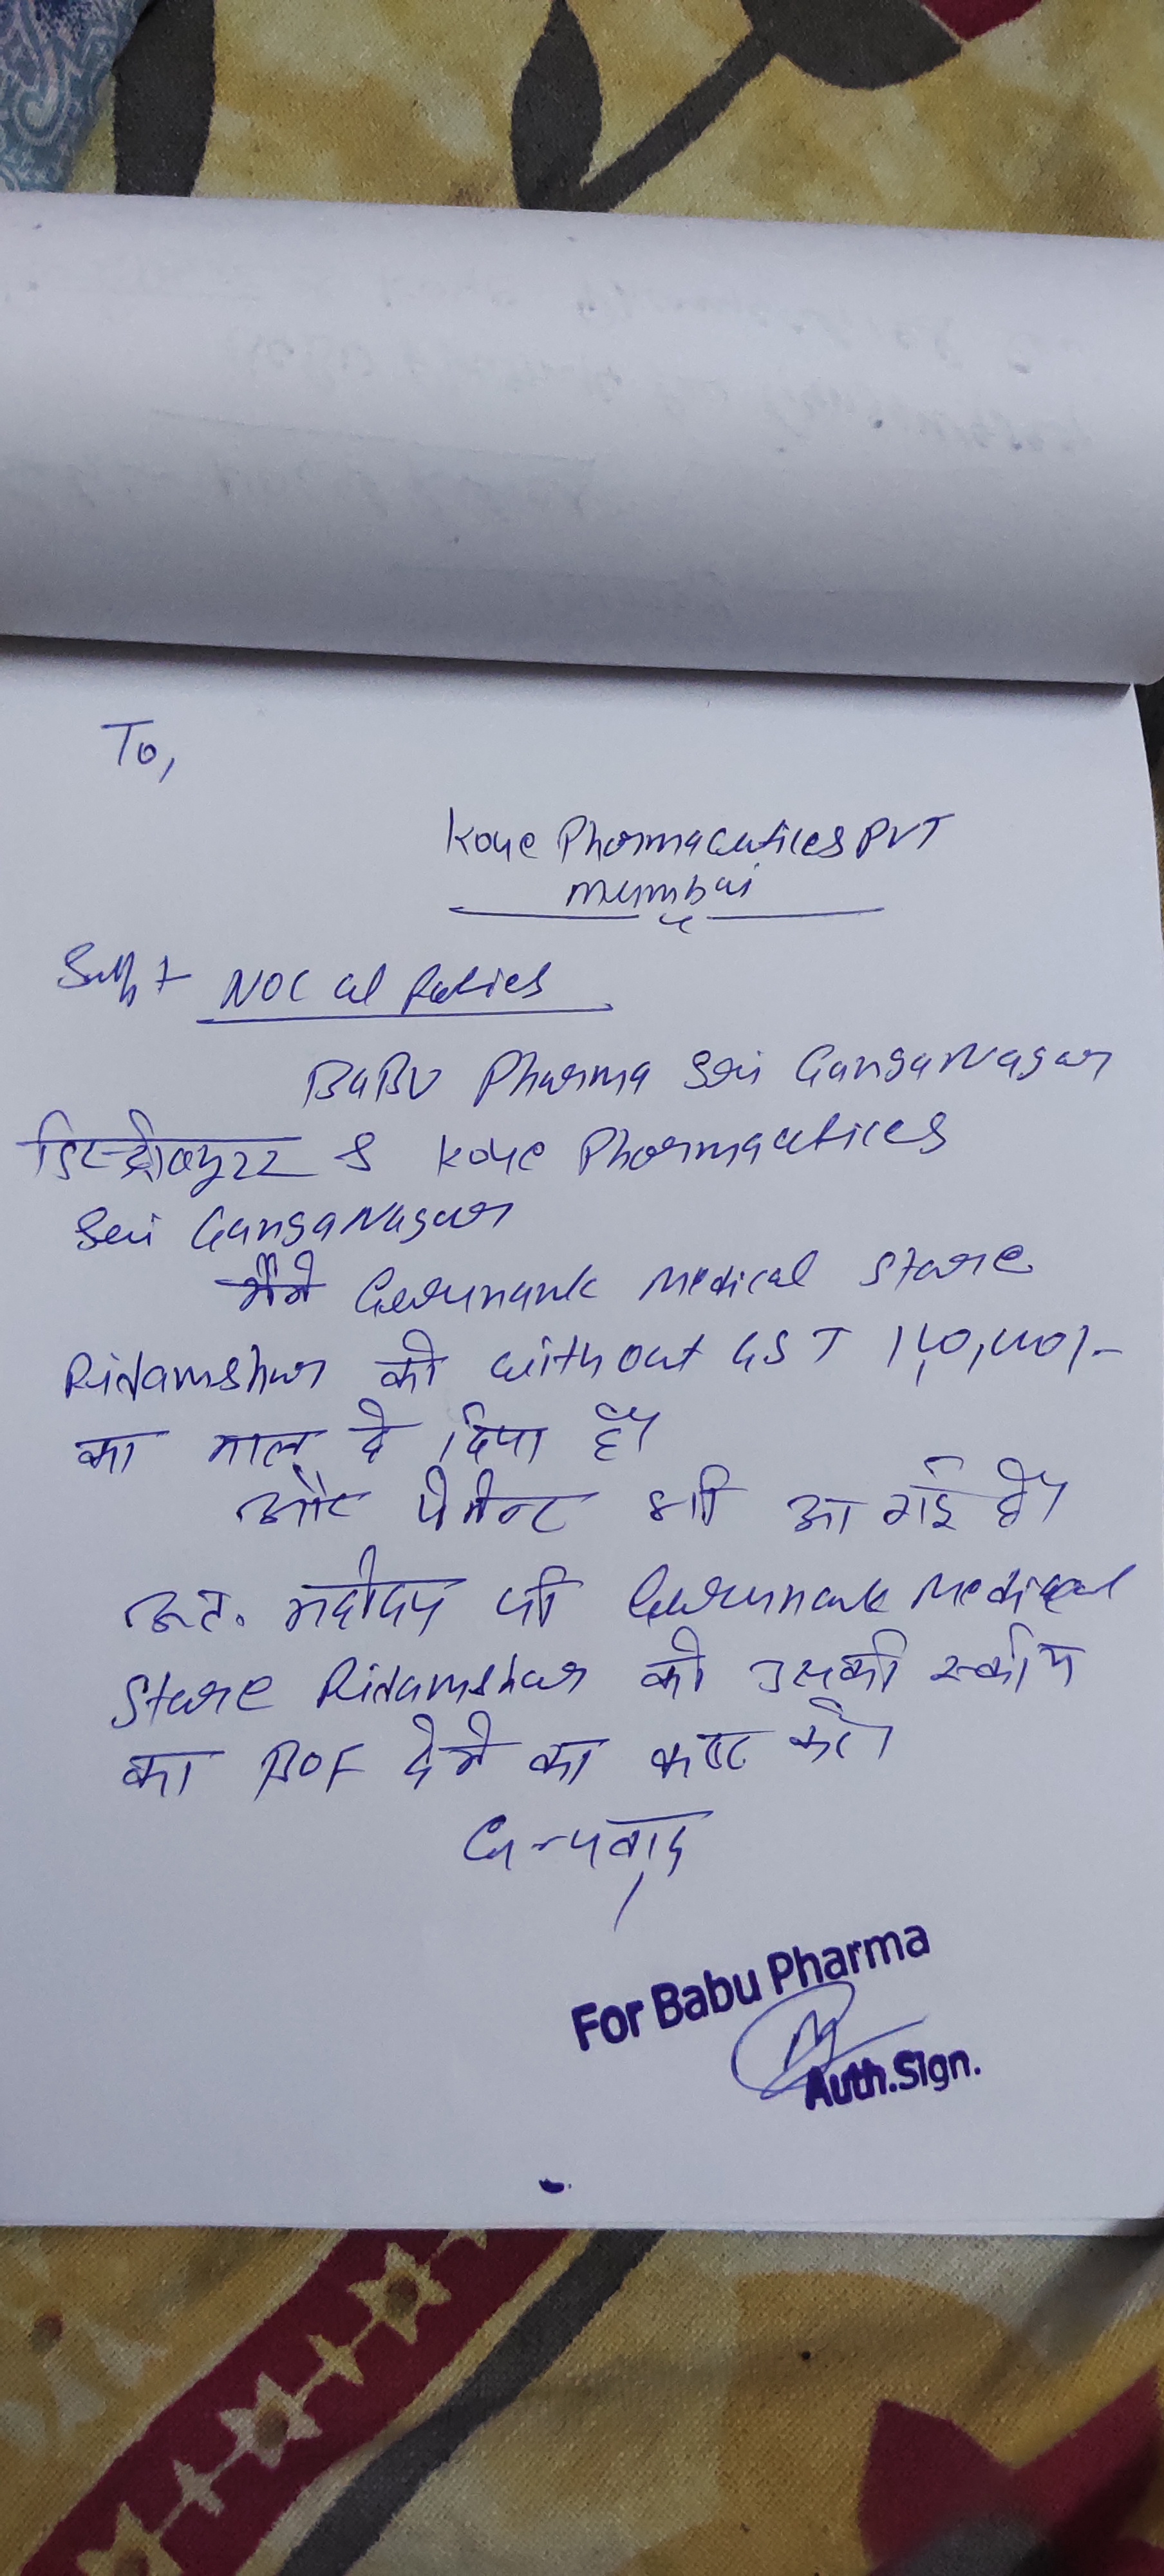 To,
Koye Pharmaceuticles PVT
Mumbai
Subj + NOC al Parties
BaBU Pharma Sri GangaNagar
डिस्ट्रीब्यूटर & Koye Pharmaceutices
Sri GangaNagar
मैंने Gurunanak Medical Store
Ridamshar को without GST
का माल दे दिया है।
और पेमेन्ट भी आ गई है।
अत. महोदय जी Gurunanak Medical
Store Ridamshar को उसकी स्कीम
का देने का कष्ट करें।
धन्यवाद
For Babu Pharma
Auth.Sign.